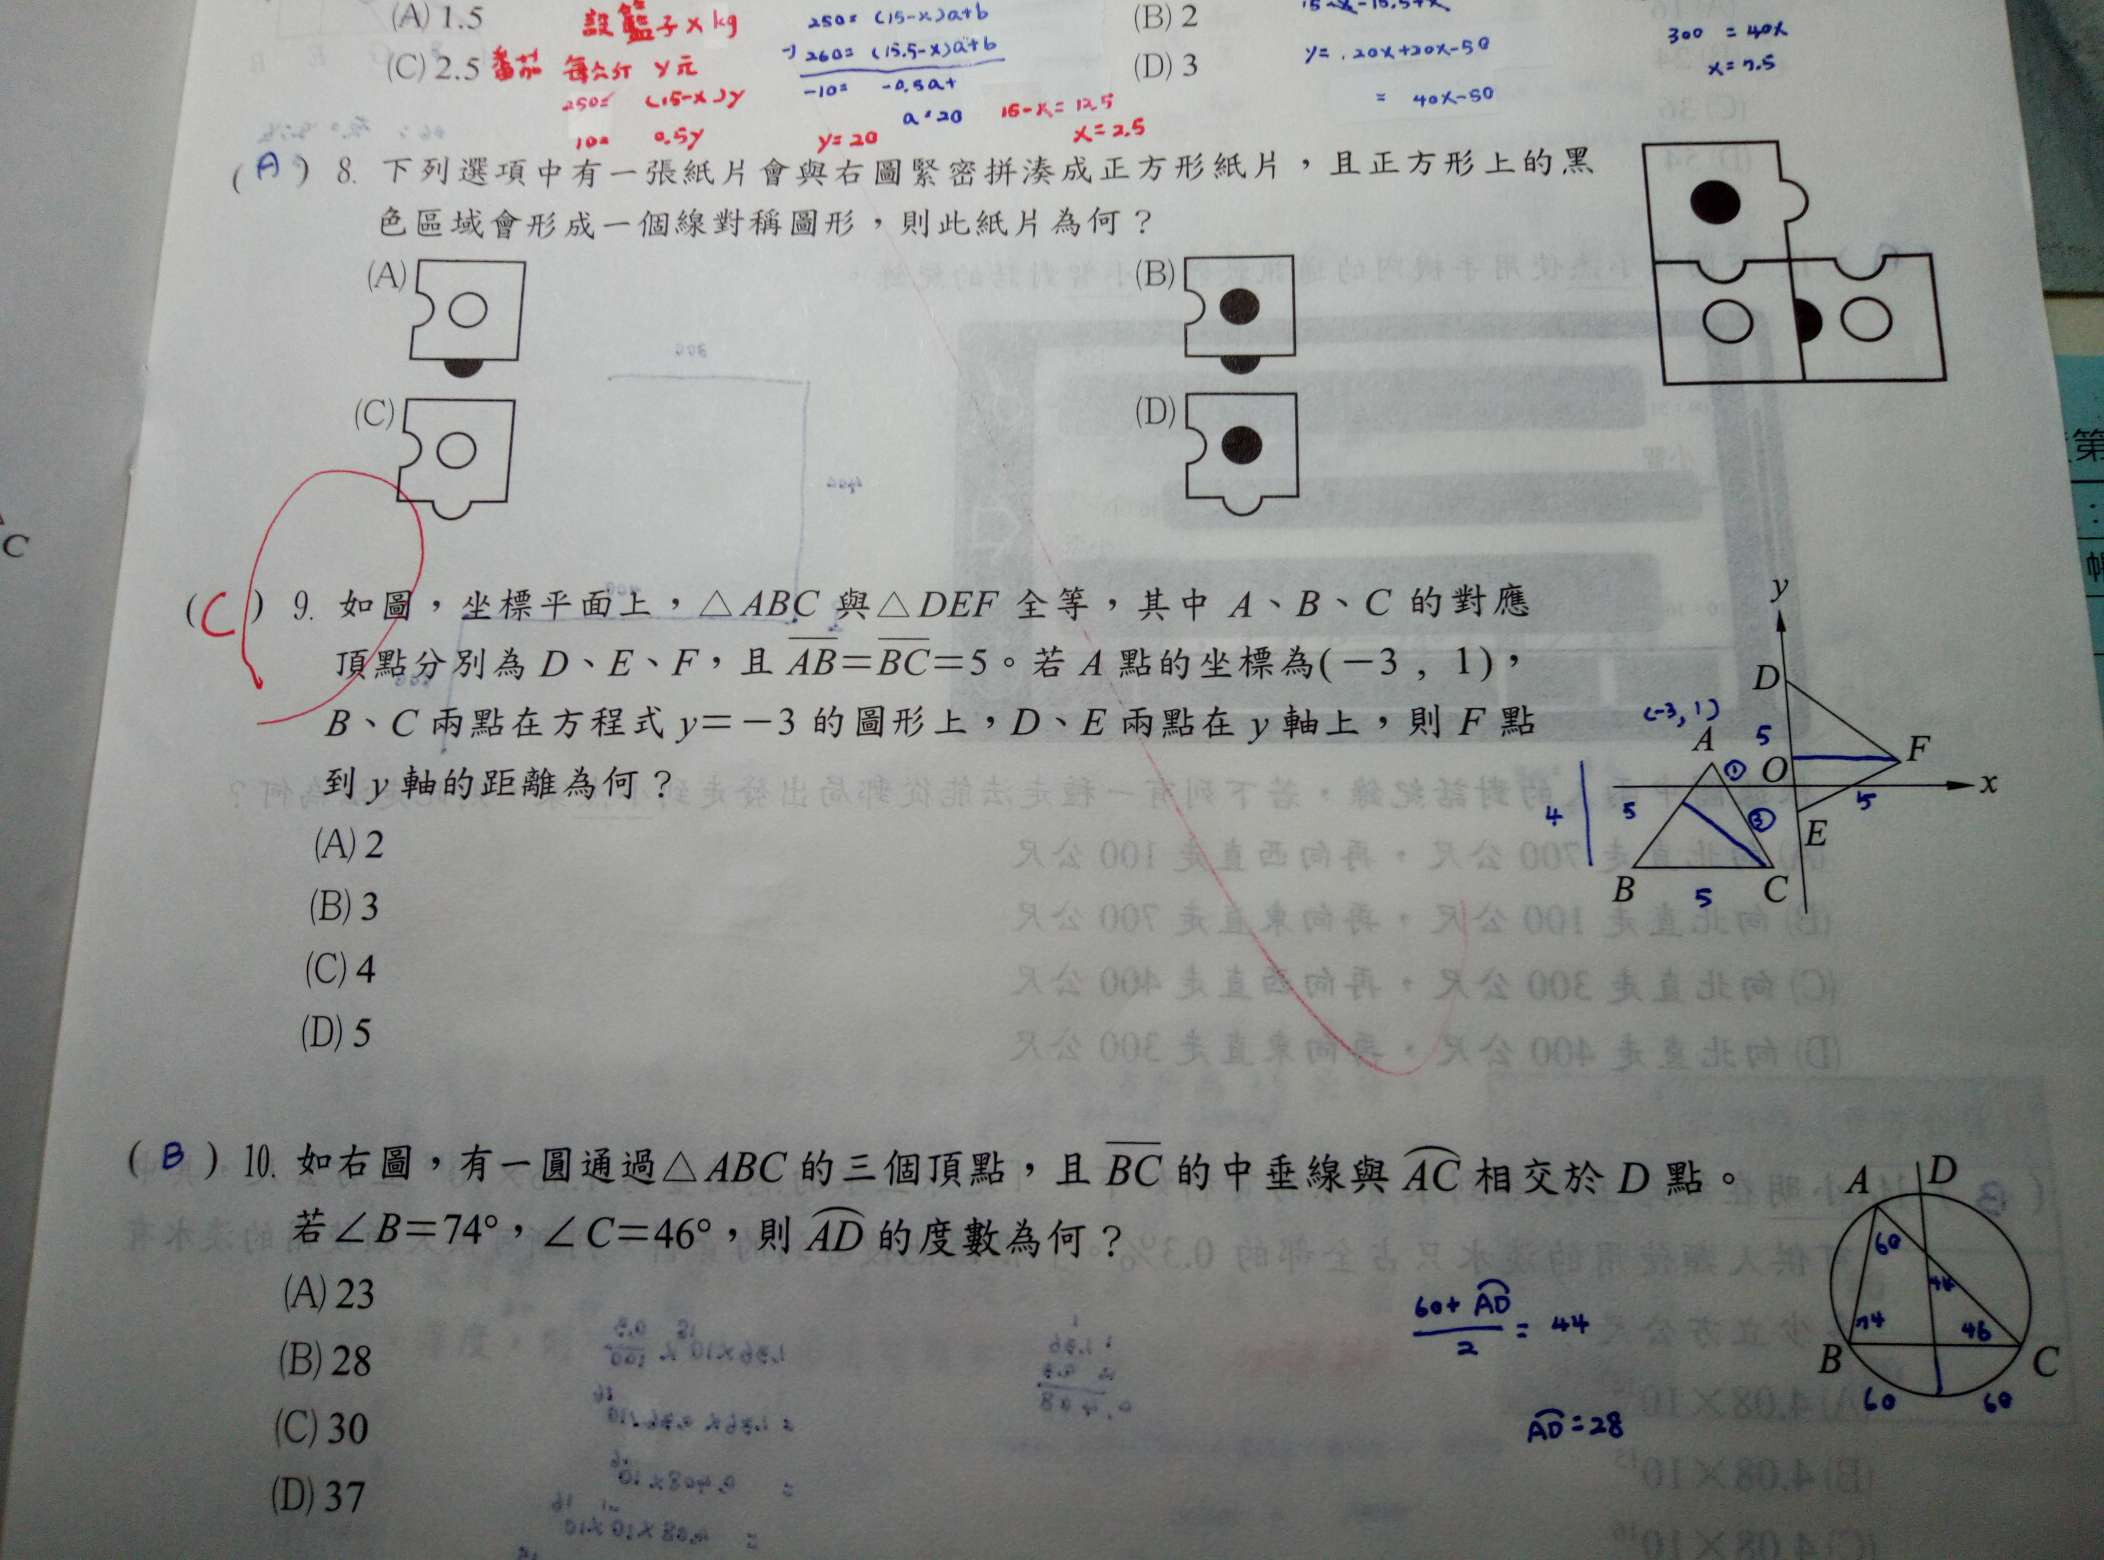 (A) 1.5
設籃子xkg
250=(15-x)a+b
(B) 2
300 = 40x
-) 260=(15.5-x)a+b
(C) 2.5
番茄 每公斤 y元
(D) 3
y= 20x+20x-50
x=7.5
-10= -0.5a+
250= (15-x)y
= 40x-50
a=20
15-x=12.5
10= 0.5y
y=20
x=2.5
(A) 8. 下列選項中有一張紙片會與右圖緊密拼湊成正方形紙片，且正方形上的黑
色區域會形成一個線對稱圖形，則此紙片為何？
(A)
(B)
(C)
(D)
(C) 9. 如圖，坐標平面上，△ABC 與△DEF 全等，其中 A、B、C 的對應
頂點分別為 D、E、F，且 AB=BC=5。若 A 點的坐標為(-3 , 1)，
B、C 兩點在方程式 y=-3 的圖形上，D、E 兩點在 y 軸上，則 F 點
到 y 軸的距離為何？
(A) 2
(B) 3
(C) 4
(D) 5
y
D
(-3,1)
A
5
F
①
O
x
4
5
③
5
E
B
5
C
(B) 10. 如右圖，有一圓通過△ABC 的三個頂點，且 BC 的中垂線與 AC 相交於 D 點。
若∠B=74°，∠C=46°，則 AD 的度數為何？
(A) 23
(B) 28
(C) 30
(D) 37
A
D
60
44
74
46
B
C
60
60
60+AD
2
= 44
AD=28
C
第